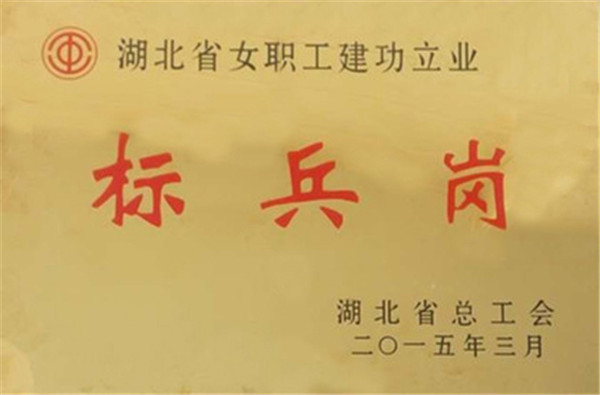 湖北省女职工建功立业
标兵岗
湖北省总工会
二〇一五年三月